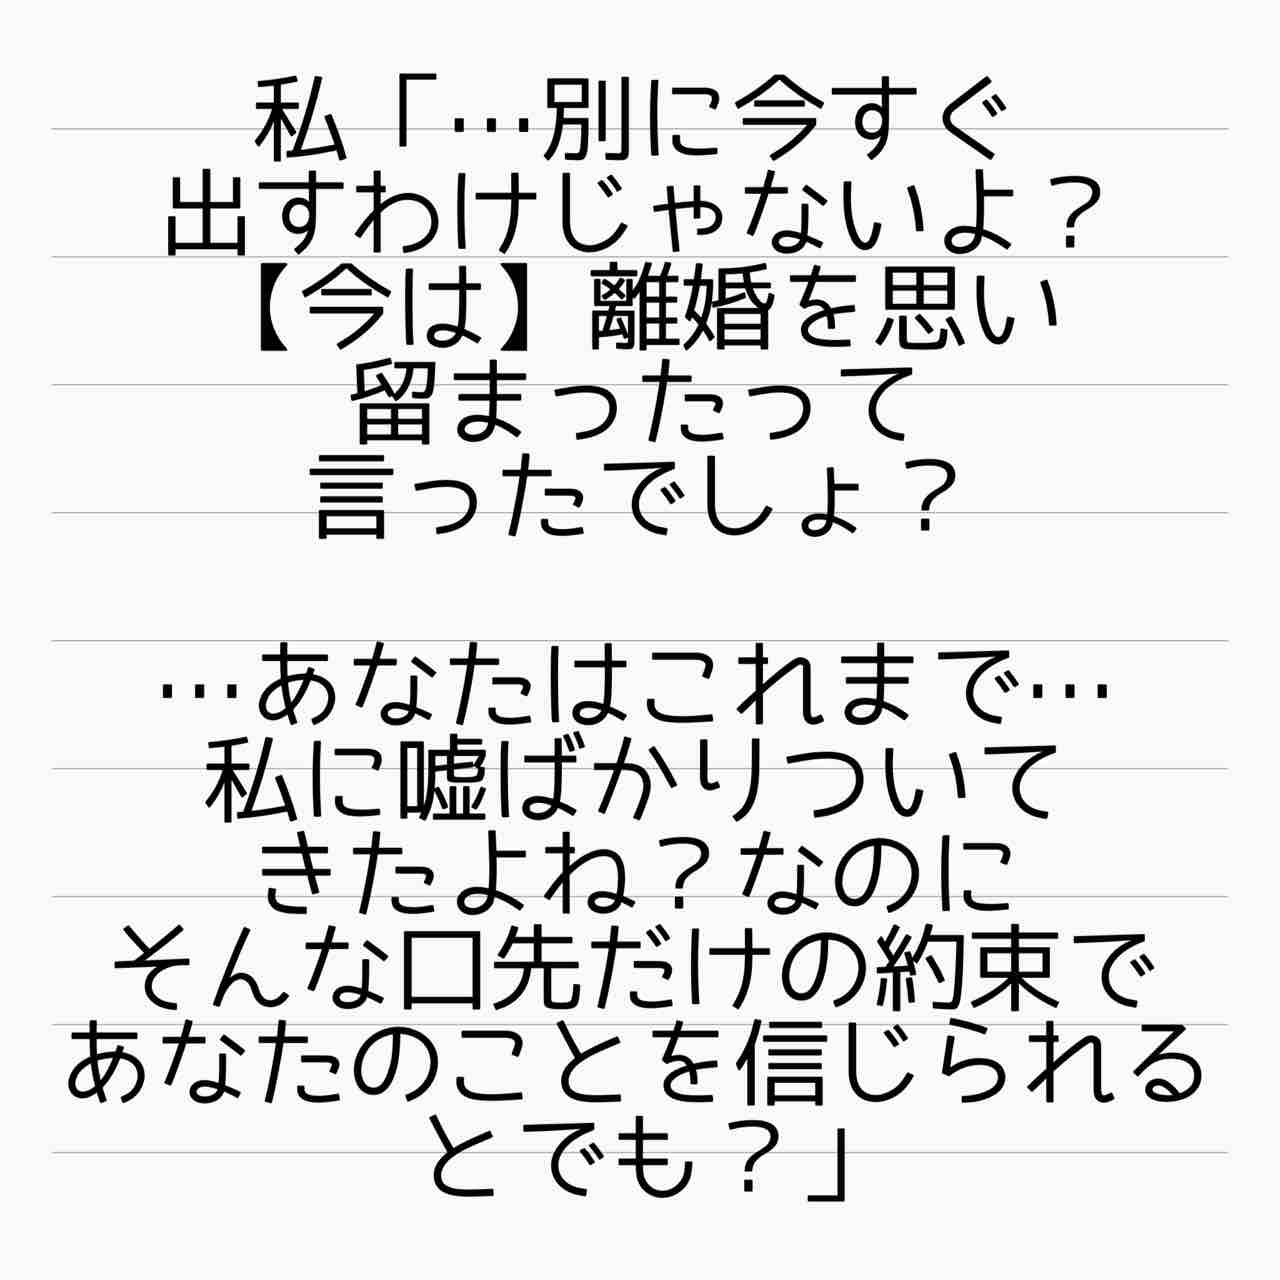 私「…別に今すぐ
出すわけじゃないよ？
【今は】離婚を思い
留まったって
言ったでしょ？
…あなたはこれまで…
私に嘘ばかりついて
きたよね？なのに
そんな口先だけの約束で
あなたのことを信じられる
とでも？」